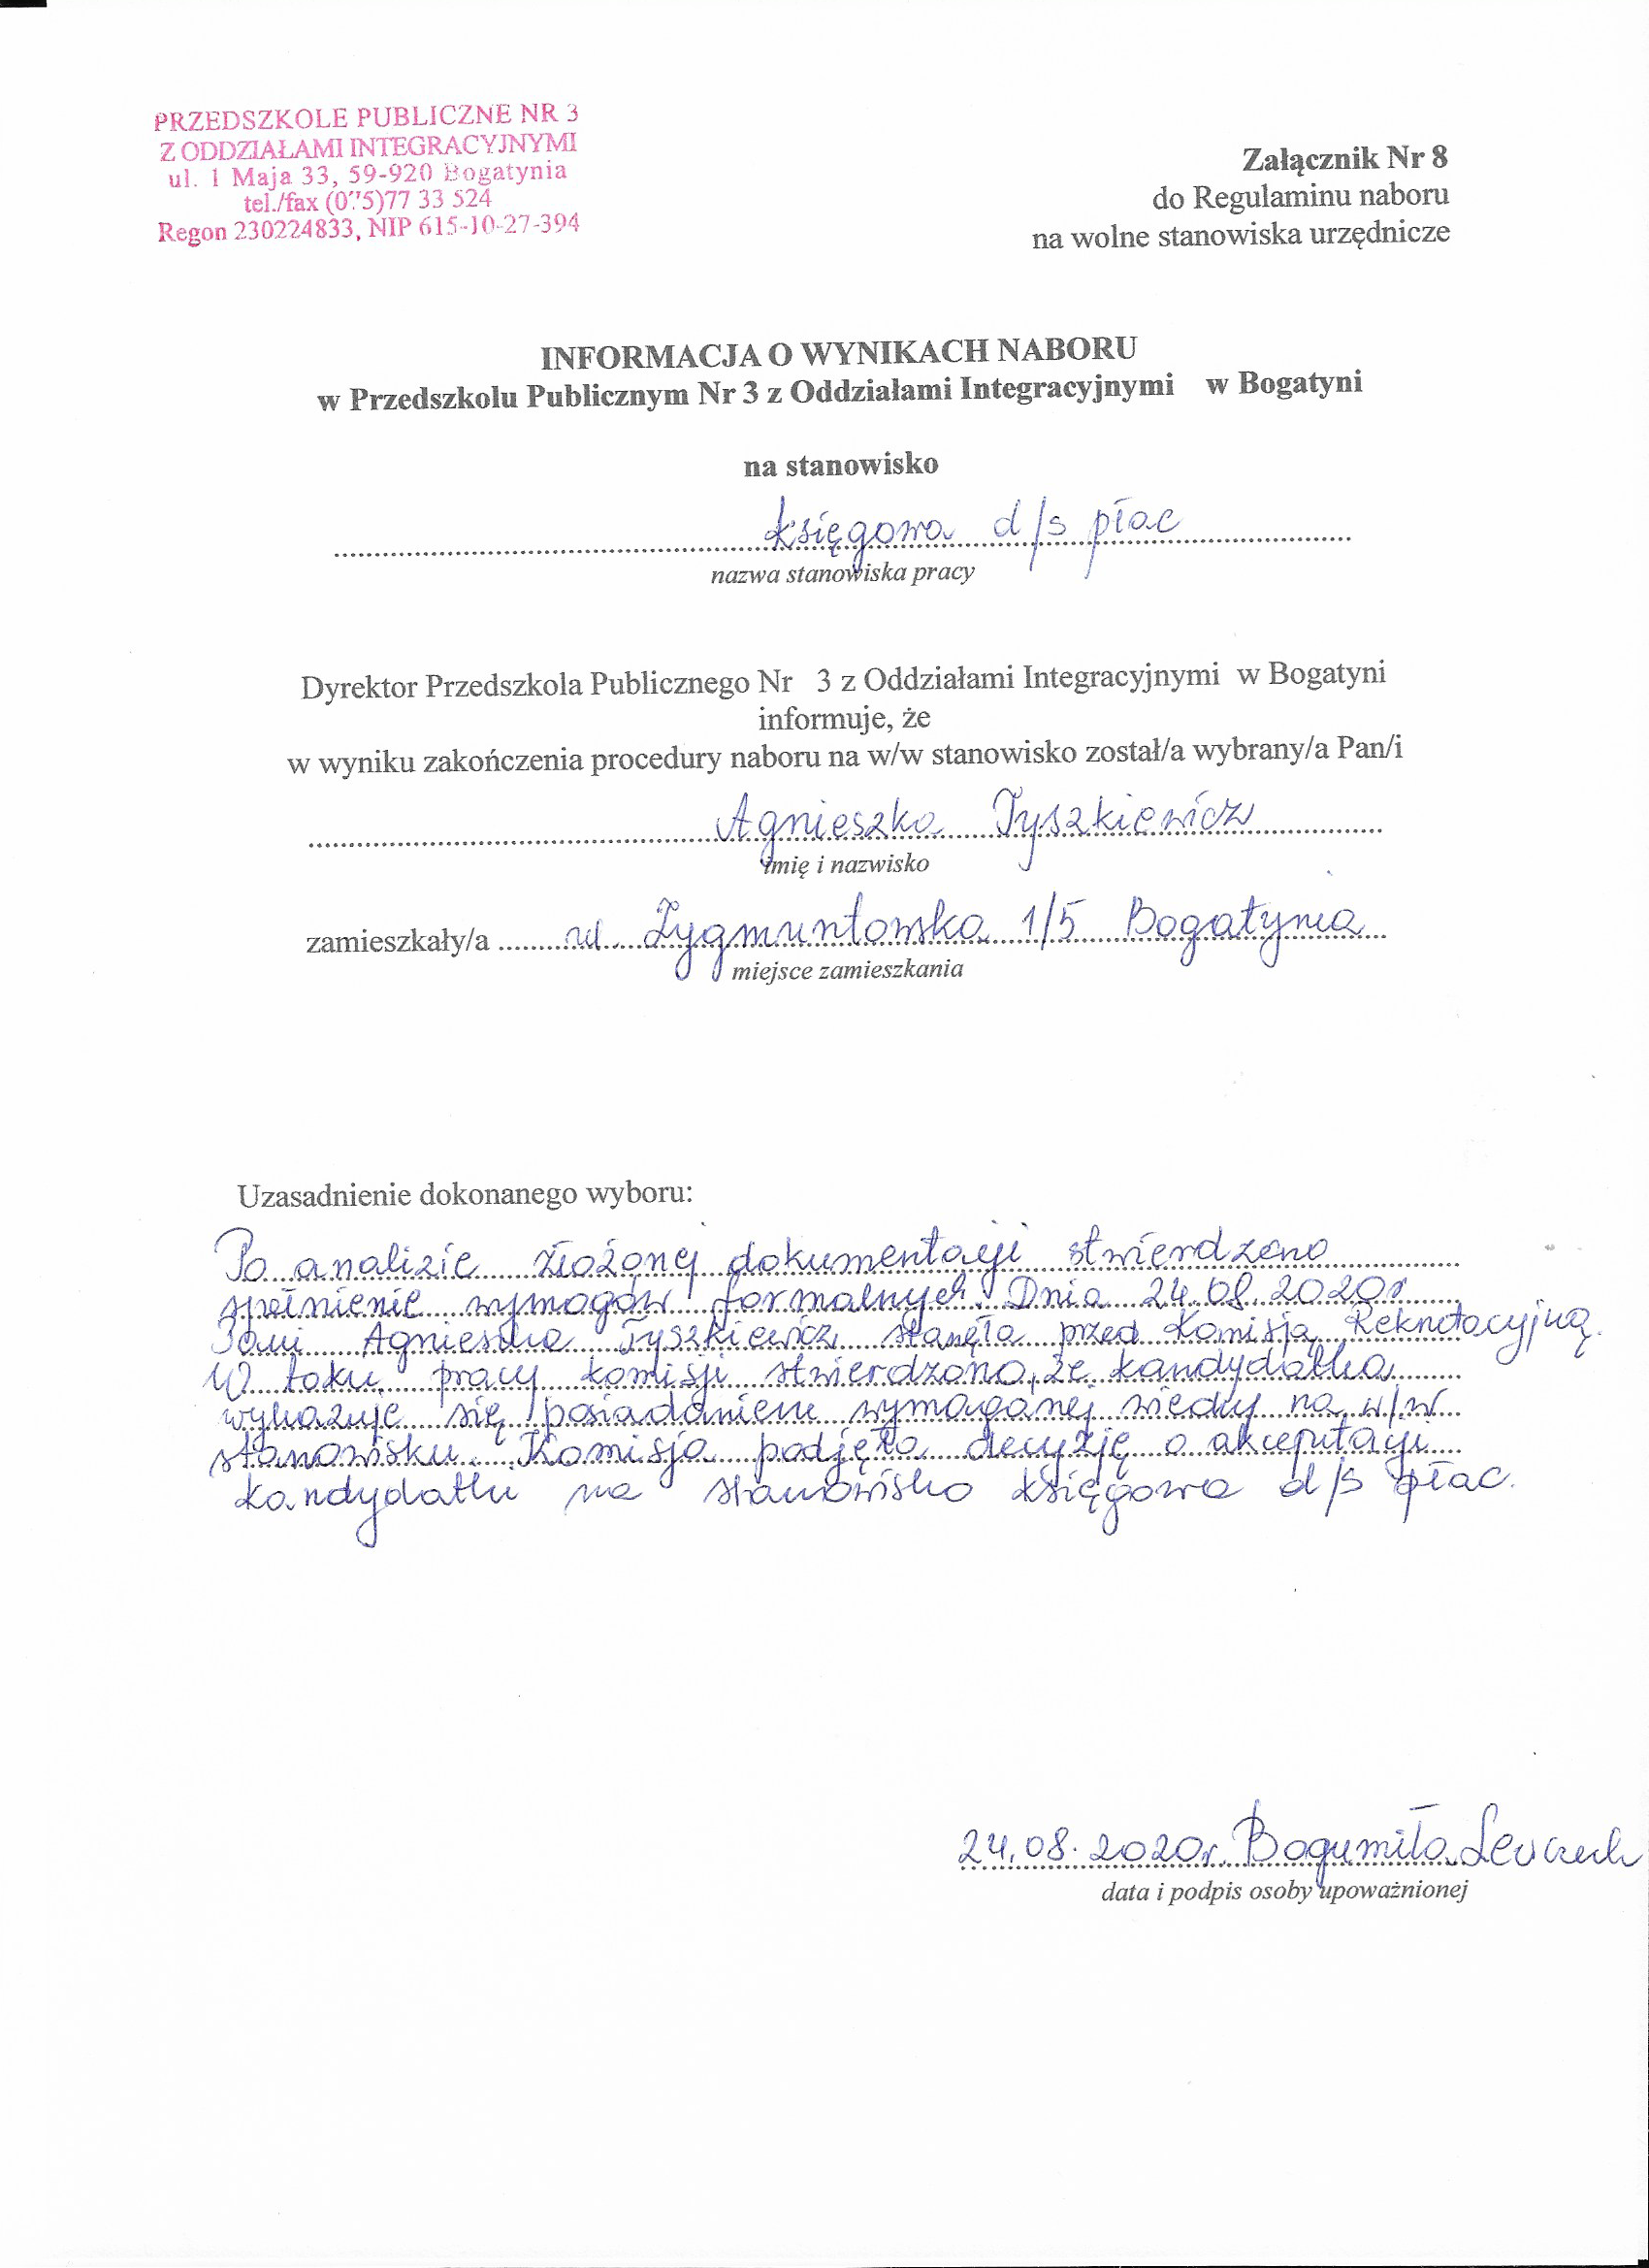 PRZEDSZKOLE PUBLICZNE NR 3
Z ODDZIAŁAMI INTEGRACYJNYMI
ul. 1 Maja 33, 59-920 Bogatynia
tel./fax (075)77 33 524
Regon 230224833, NIP 615-10-27-394
Załącznik Nr 8
do Regulaminu naboru
na wolne stanowiska urzędnicze
INFORMACJA O WYNIKACH NABORU
w Przedszkolu Publicznym Nr 3 z Oddziałami Integracyjnymi w Bogatyni
na stanowisko
księgowa d/s płac
nazwa stanowiska pracy
Dyrektor Przedszkola Publicznego Nr 3 z Oddziałami Integracyjnymi w Bogatyni
informuje, że
w wyniku zakończenia procedury naboru na w/w stanowisko został/a wybrany/a Pan/i
Agnieszka Tyszkiewicz
imię i nazwisko
zamieszkały/a ul Zygmuntowska 1/5 Bogatynia
miejsce zamieszkania
Uzasadnienie dokonanego wyboru:
Po analizie złożonej dokumentacji stwierdzono
spełnienie wymogów formalnych. Dnia 24.08.2020r
Pani Agnieszka Tyszkiewicz stanęła przed Komisją Rekrutacyjną.
W toku pracy komisji stwierdzono, że kandydatka
wykazuje się posiadaniem wymaganej wiedzy na w/w
stanowisku. Komisja podjęła decyzję o akceptacji
kandydatki na stanowisko księgowa d/s płac.
24.08.2020r. Bogumiła
data i podpis osoby upoważnionej